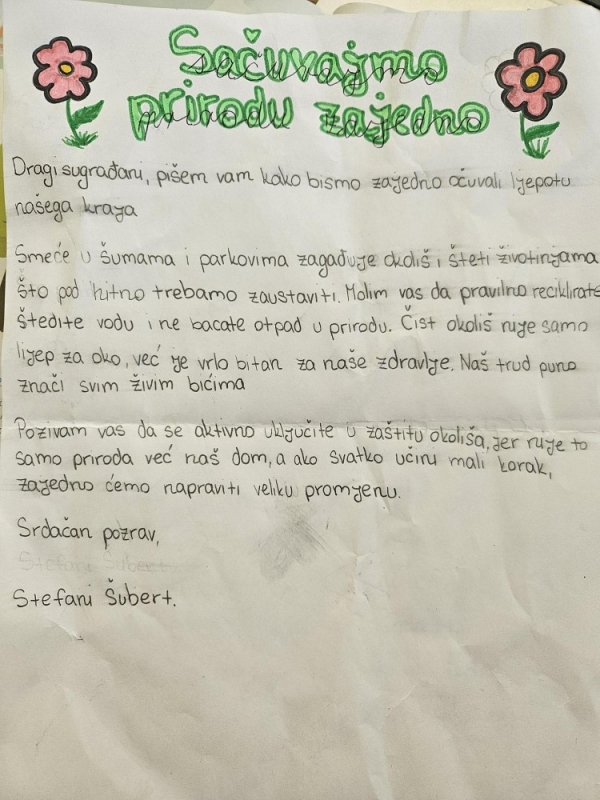 Sačuvajmo
prirodu zajedno
Dragi sugrađani, pišem vam kako bismo zajedno očuvali ljepotu
našega kraja
Smeće u šumama i parkovima zagađuje okoliš i šteti životinjama
što pod hitno trebamo zaustaviti. Molim vas da pravilno reciklirate
štedite vodu i ne bacate otpad u prirodu. Čist okoliš nije samo
lijep za oko, već je vrlo bitan za naše zdravlje. Naš trud puno
znači svim živim bićima
Pozivam vas da se aktivno uključite u zaštitu okoliša, jer nije to
samo priroda već naš dom, a ako svatko učini mali korak,
zajedno ćemo napraviti veliku promjenu.
Srdačan pozrav,
Stefani Šubert
Stefani Šubert.